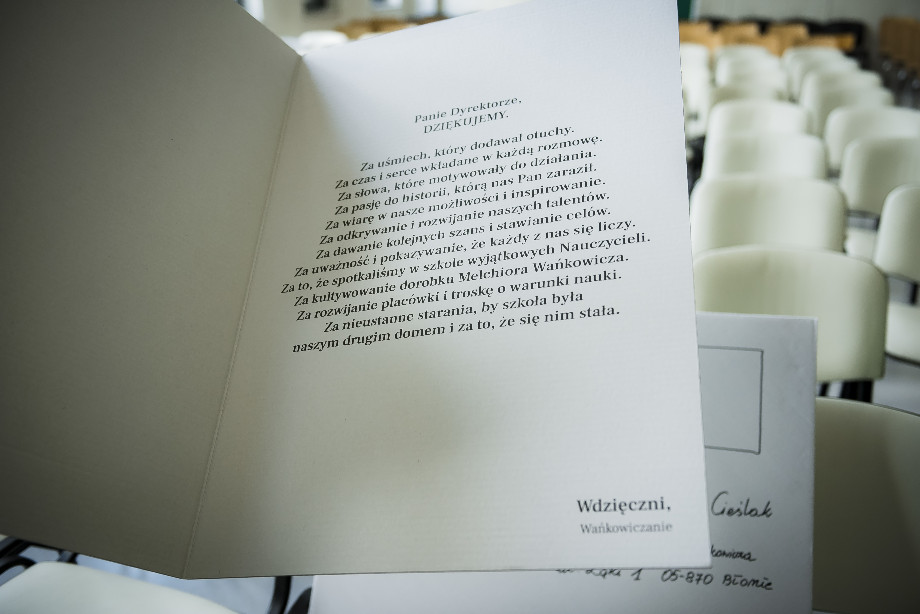 Panie Dyrektorze,
DZIĘKUJEMY.
Za uśmiech, który dodawał otuchy.
Za czas i serce wkładane w każdą rozmowę.
Za słowa, które motywowały do działania.
Za pasję do historii, którą nas Pan zaraził.
Za wiarę w nasze możliwości i inspirowanie.
Za odkrywanie i rozwijanie naszych talentów.
Za dawanie kolejnych szans i stawianie celów.
Za uważność i pokazywanie, że każdy z nas się liczy.
Za to, że spotkaliśmy w szkole wyjątkowych Nauczycieli.
Za kultywowanie dorobku Melchiora Wańkowicza.
Za rozwijanie placówki i troskę o warunki nauki.
Za nieustanne starania, by szkoła była
naszym drugim domem i za to, że się nim stała.
Wdzięczni,
Wańkowiczanie
Cieślak
1 05-870 Błonie